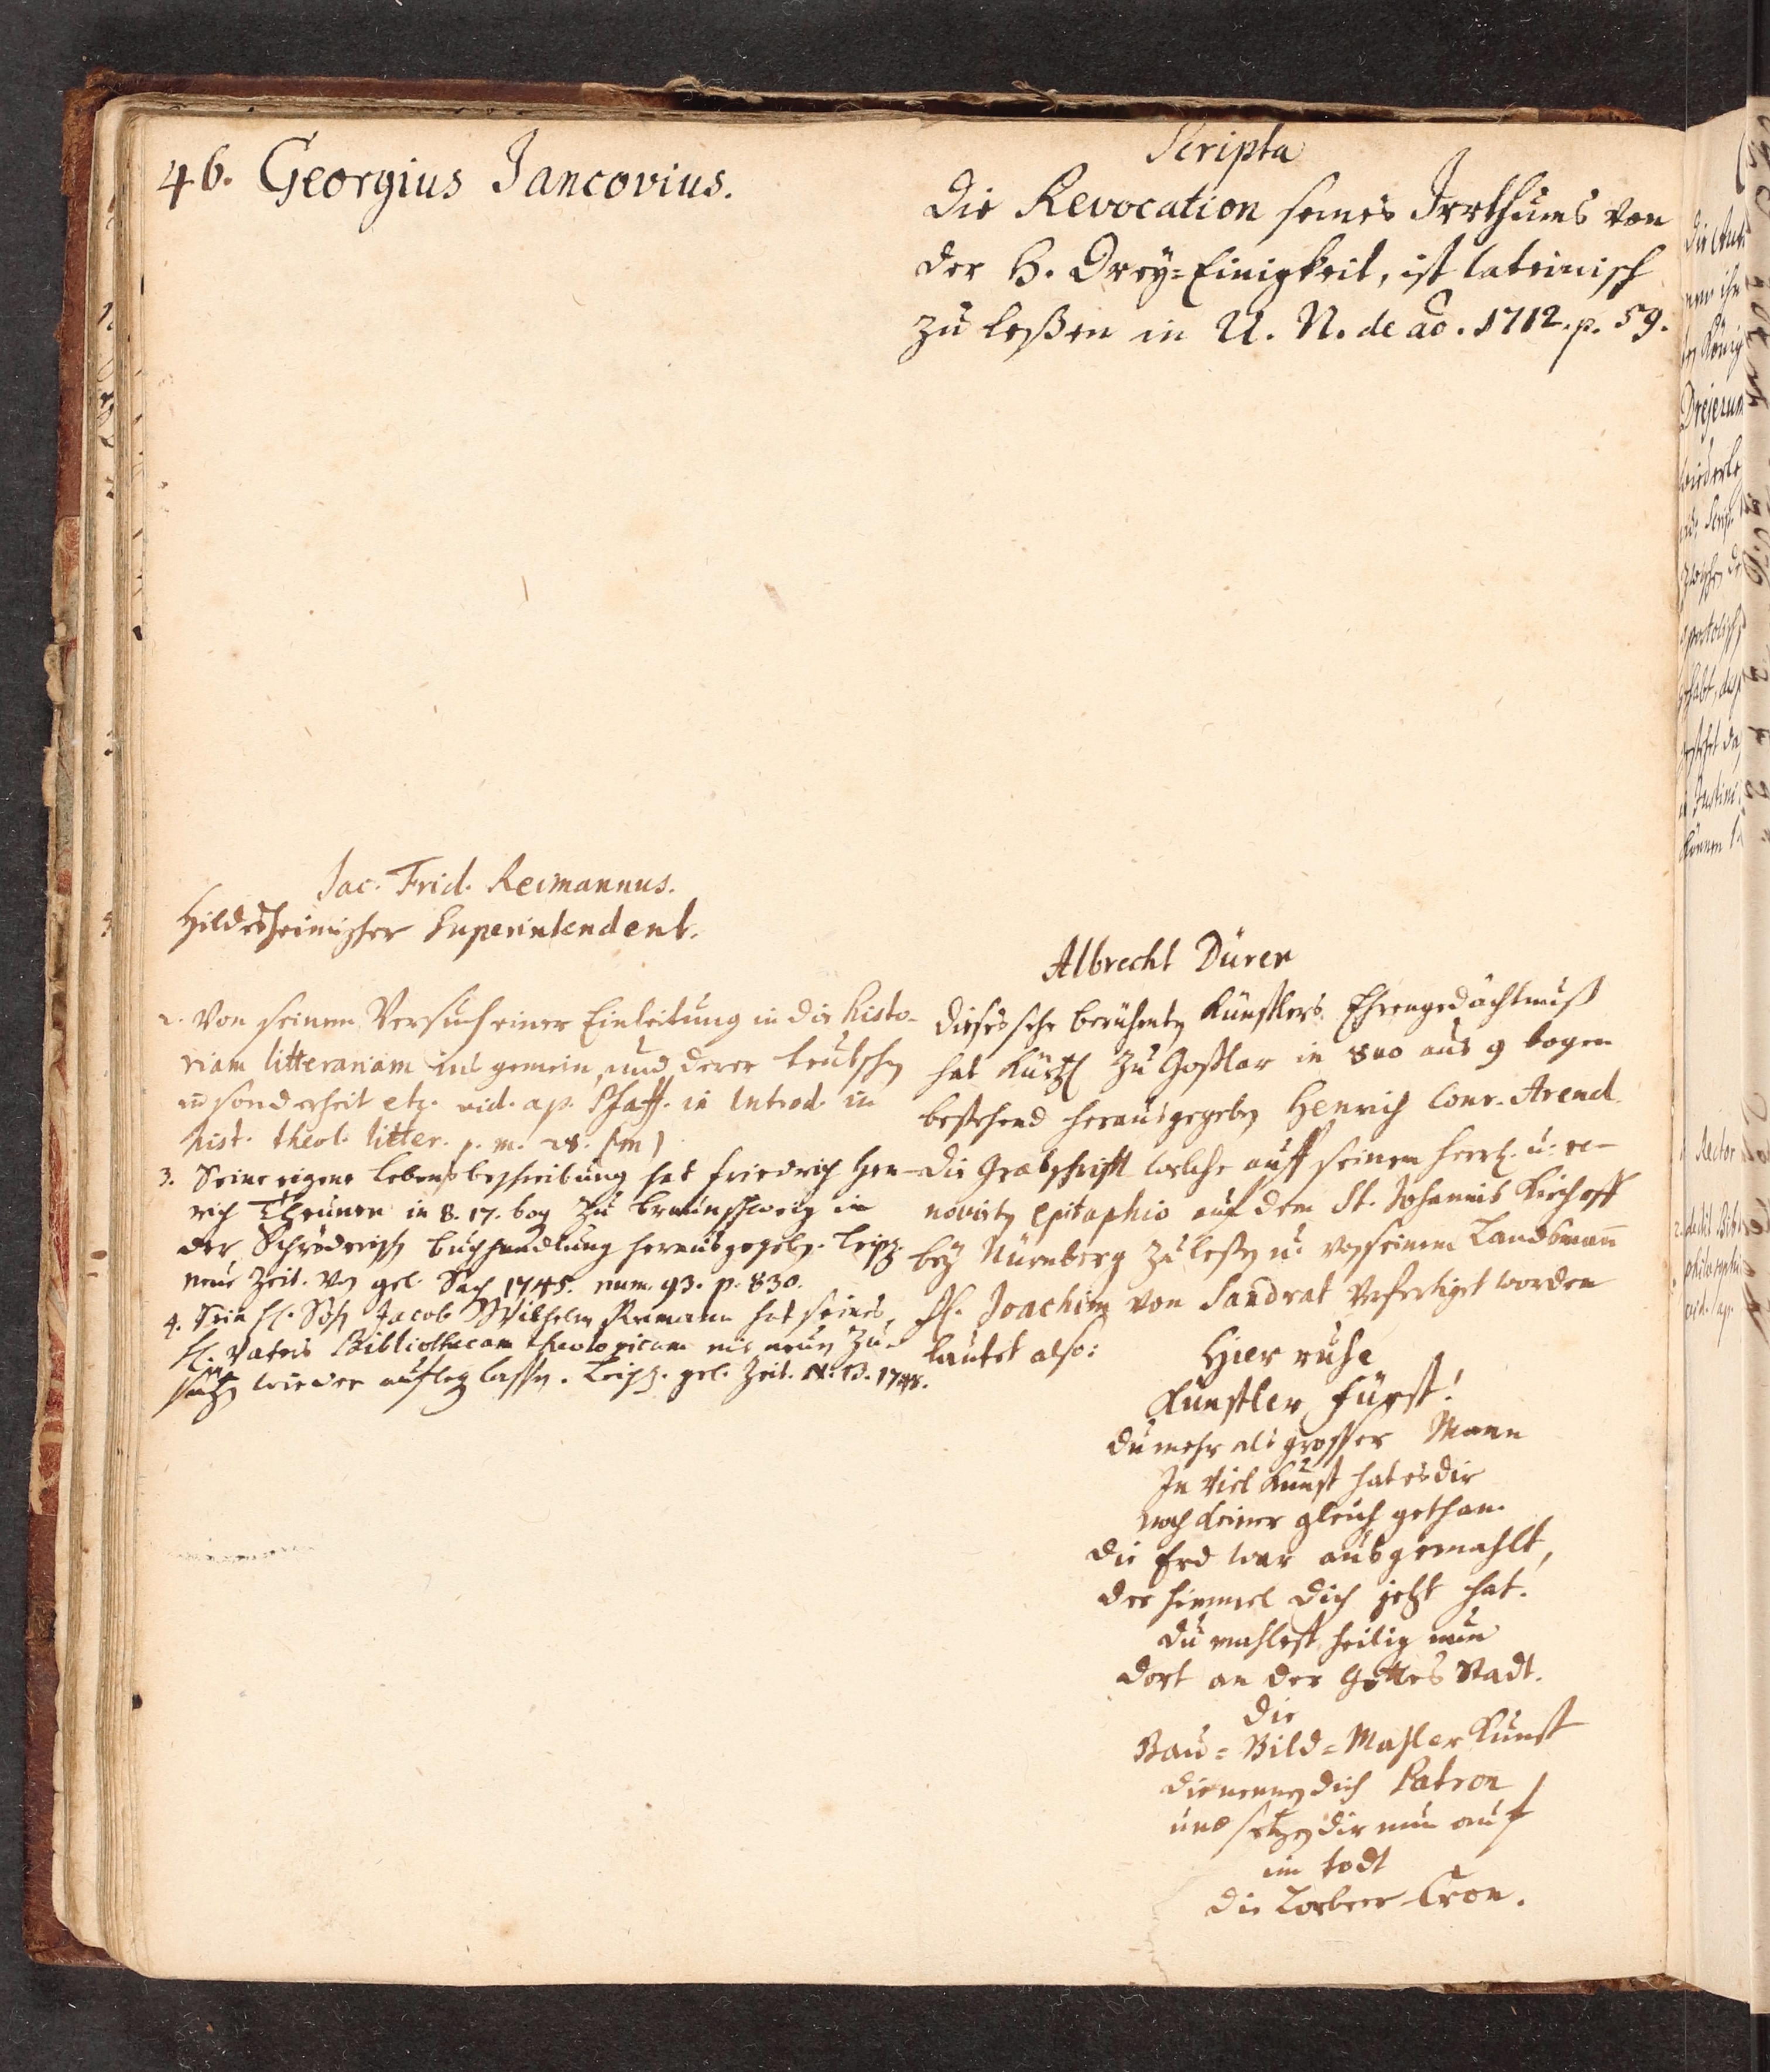 46. Georgius Jancovius.
Scripta
Die Revocation seines Irrthums von
der H. Drey=Einigkeit, ist lateinisch
zu leßen in U. N. de ao. 1712. p. 59.
Jac. Frid. Reimannus.
Hildesheimischer Superintendent.
2. Von seinem Versuch einer Einleitung in die Histo-
riam litterariam ins gemein, und derer teutschen
insonderheit etz. vid. ap. Pfaff. in Introd. in
hist. theol. litter. p. m. 28. (m)
3. Seine eigene Lebensbeschreibung hat Friedrich Hen-
rich Theunen in 8. 17. bog zu Braunschweig in
der Schröderisch Buchhandlung herausgegeben. Leipz.
neue Zeit. von gel. Sach 1745. num. 93. p. 830.
4. Sein H. Sohn Jacob Wilhelm Reimann hat seines
H. Vaters Bibliothecam theologicam mit neuen Zu-
sätzen wieder auflegen lassen. Leipz. gel. Zeit. N. 13. 1748.
Albrecht Dürer
dieses sehr berühmten Künstlers Ehrengedächtnuß
hat zu Goßlar in 8vo aus 9 bogen
bestehend herausgegeben Henrich Conr. Arend.
die Grabschrifft welche auff seinem herrl. u. re-
novirten Epitaphio auf dem St. Johannis Kirchoff
bey Nürnberg zu leßen u. von seinem Landsmann
H. Joachim von Sandrat verfertiget worden
lautet also:
Hier ruhe
Künstler Fürst!
du mehr als grosser Mann
In viel Kunst hat es dir
noch keiner gleich gethan.
die Erd war ausgemahlt,
der Himmel dich jetzt hat.
du mahlest heilig nun
dort an der Gottes Stadt.
die
Bau=Bild=Mahler Kunst
die nennen dich Patron
und setzen dir nun auf
im todt
die Lorbeer-Cron.